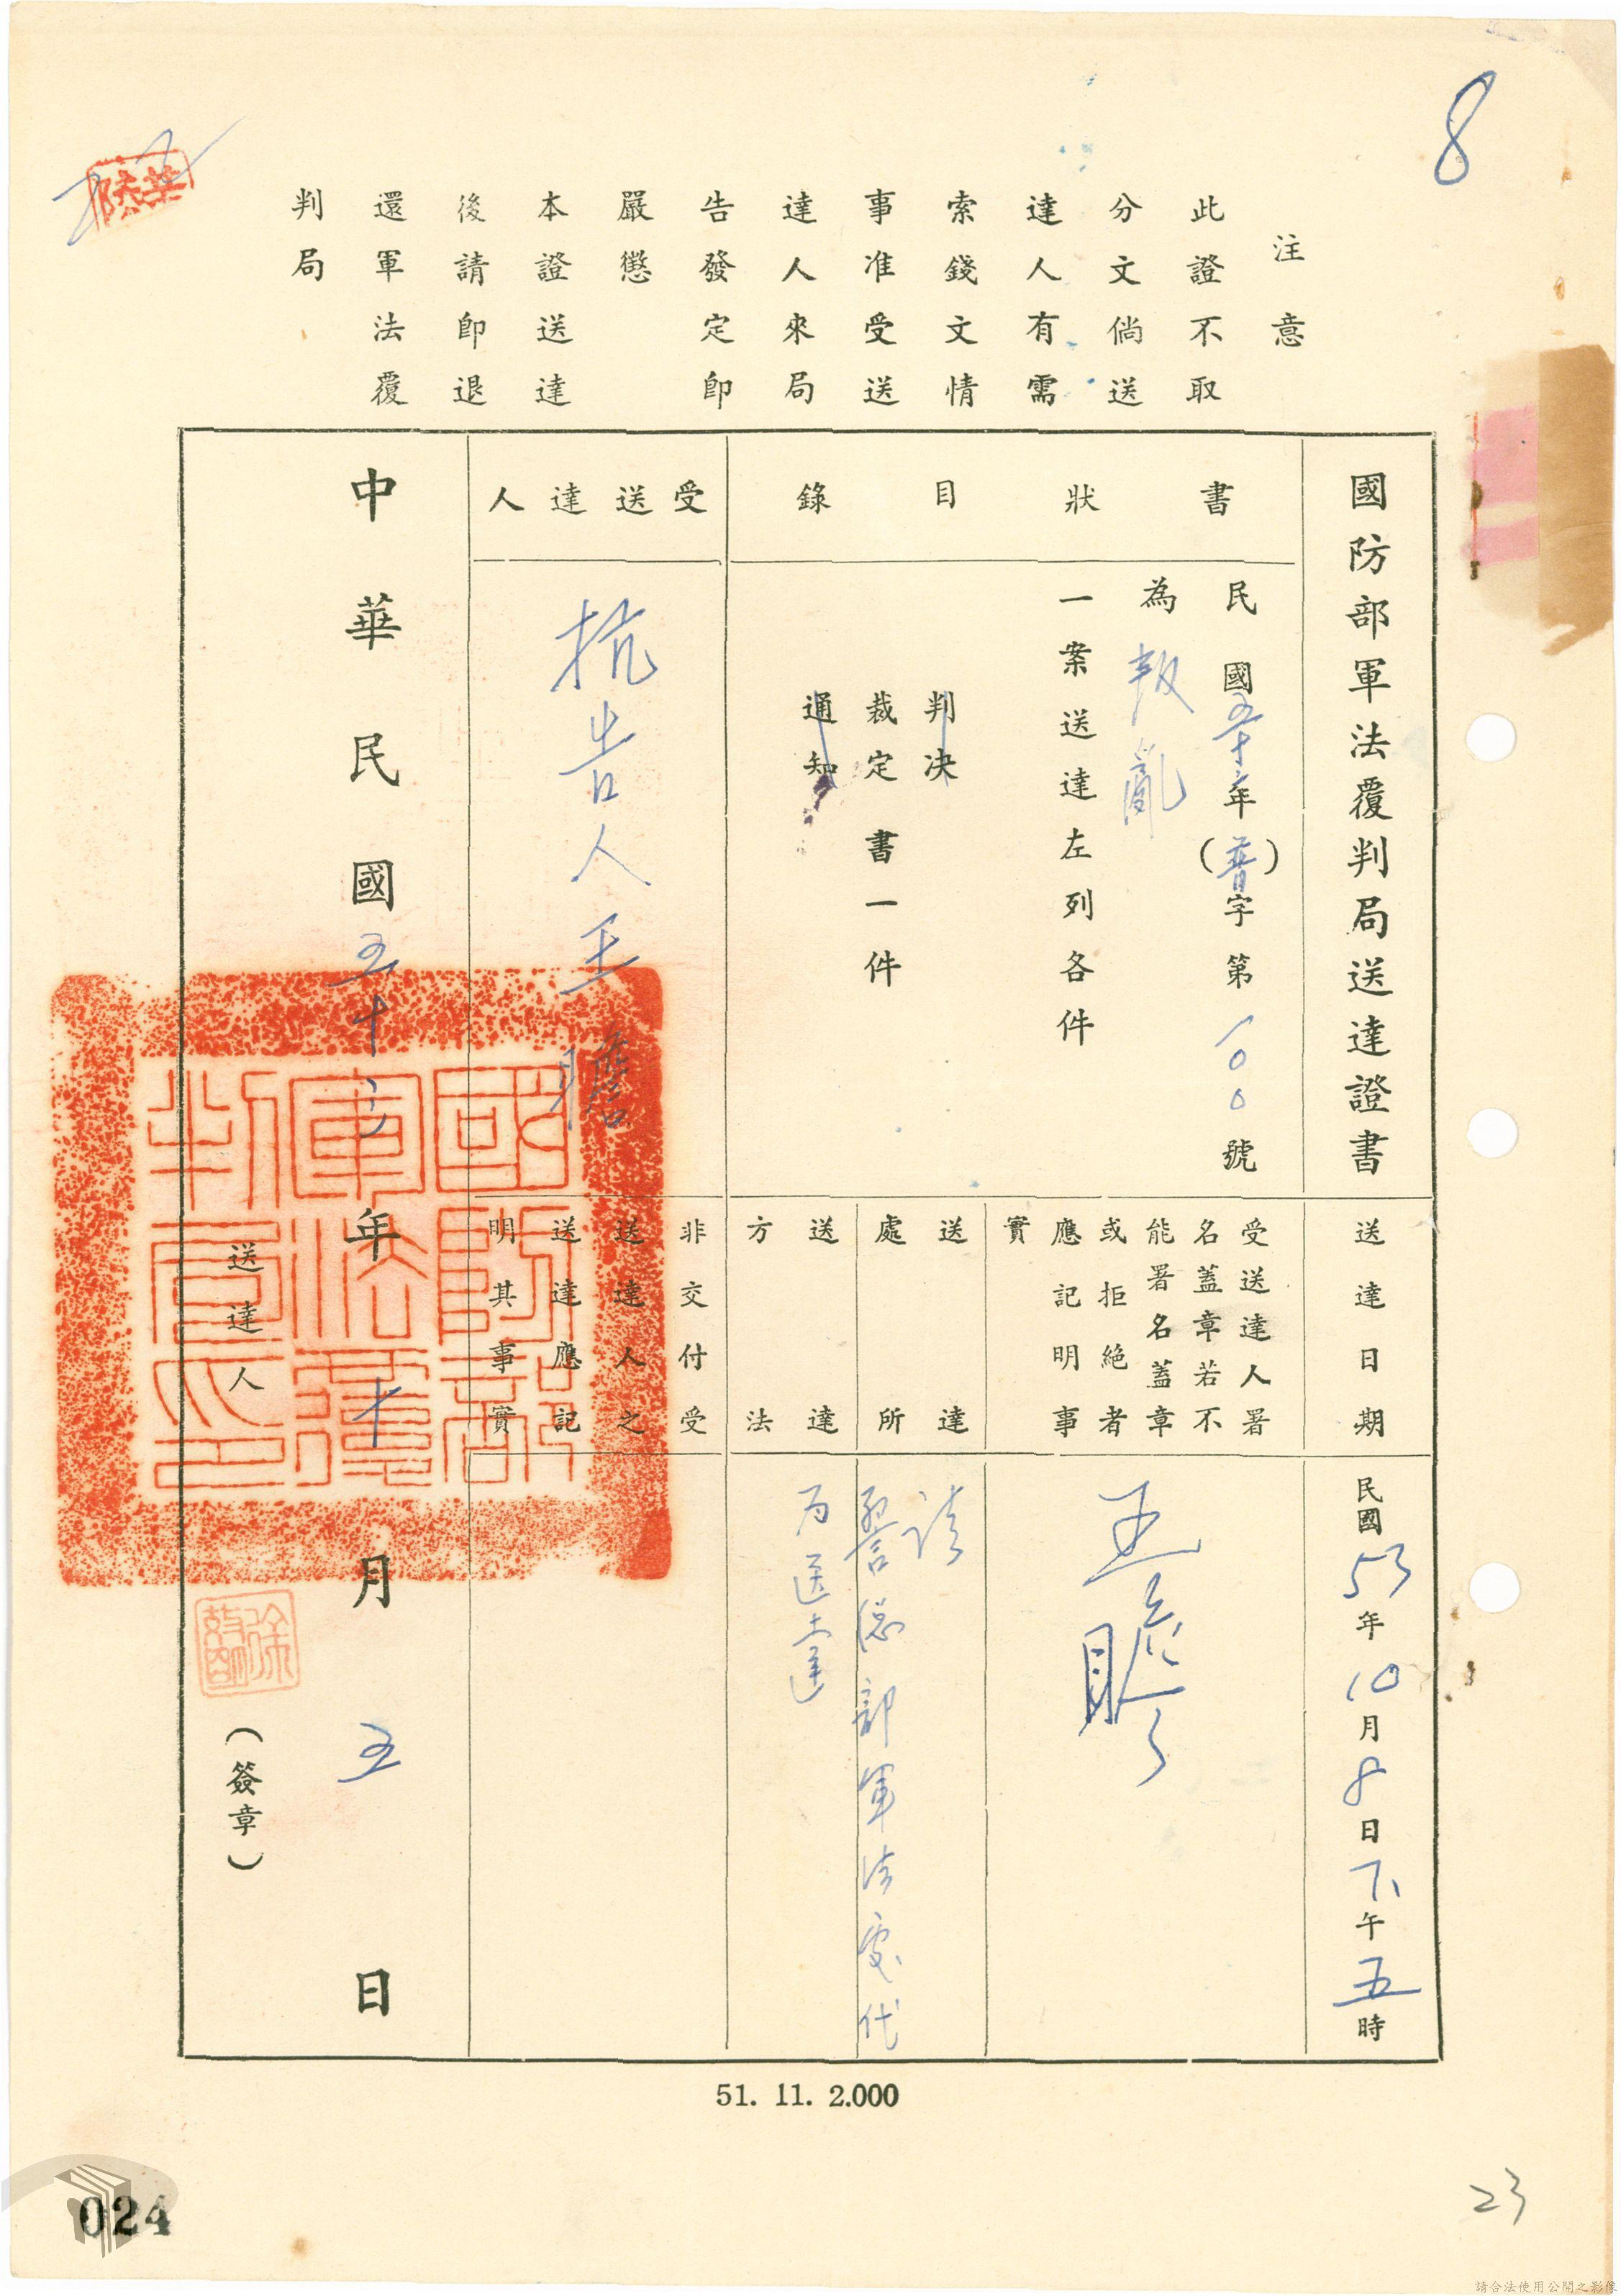 8
注意
此證不取
分文倘送
達人有需
索錢文情
事准受送
達人來局
告發定即
嚴懲
本證送達
後請即退
還軍法覆
判局
國防部軍法覆判局送達證書
書狀目錄
民國五十三年（普）字第一00號
為叛亂
一案送達左列各件
判決
裁定書一件
通知
受送達人
抗告人王瞻
送達日期
民國53年10月8日下午五時
受送達人署
名蓋章若不
能署名蓋章
或拒絕者
應記明事
實
王瞻
送達
處所
送達
方法
請
警總部軍法處代
為送達
非交付受
送達人之
送達應記
明其事實
中華民國五十三年十月五日
國防部
軍法覆
判局印
送達人
（簽章）
51. 11. 2.000
024
23
請合法使用公開之影像